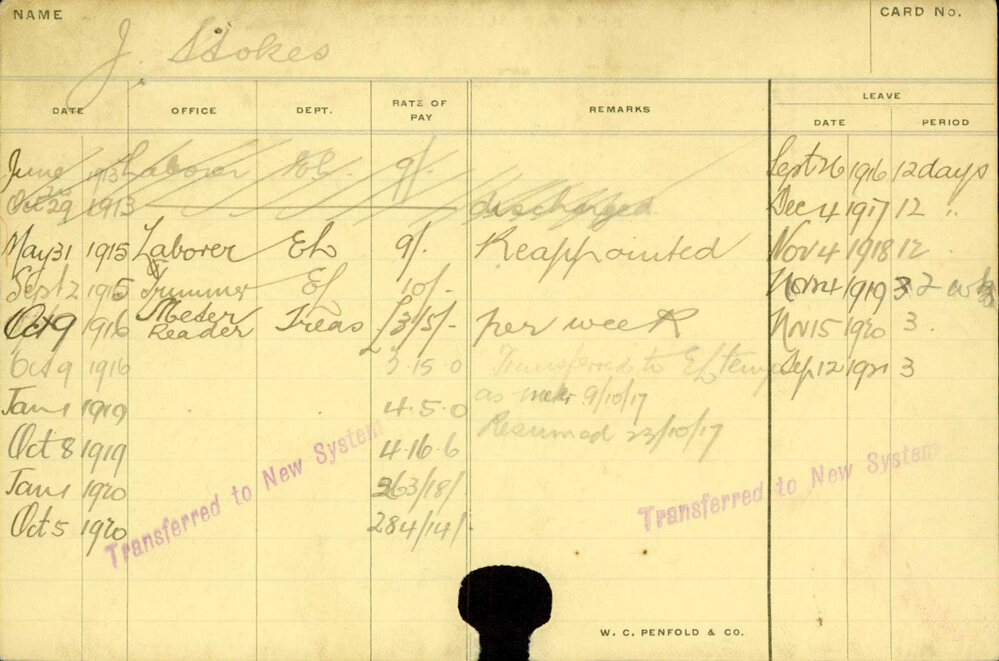 NAME
CARD No.
J. Stokes
DATE OFFICE DEPT. RATE OF PAY REMARKS LEAVE
DATE PERIOD
June 1913 Laborer EL. 9/. Sept 26 1916 12 days
Oct 29 1913 discharged Dec 4 1917 12 "
May 31 1915 Laborer EL 9/. Reappointed Nov 4 1918 12
Sept 2 1915 Trimmer EL 10/- 1919 3
Oct 9 1916 Meter Reader Treas £3/5/- per week Nov 15 1920 3.
Oct 9 1916 3.15.0 Transferred to EL temp Sep 12 1921 3
as 9/10/17
Jan 1 1919 4.5.0
Resumed 22/10/17
Oct 8 1919 4.16.6
Jan 1 1920 263/18/
Oct 5 1920 284/14/-
Transferred to New System
Transferred to New System
W. C. PENFOLD & CO.